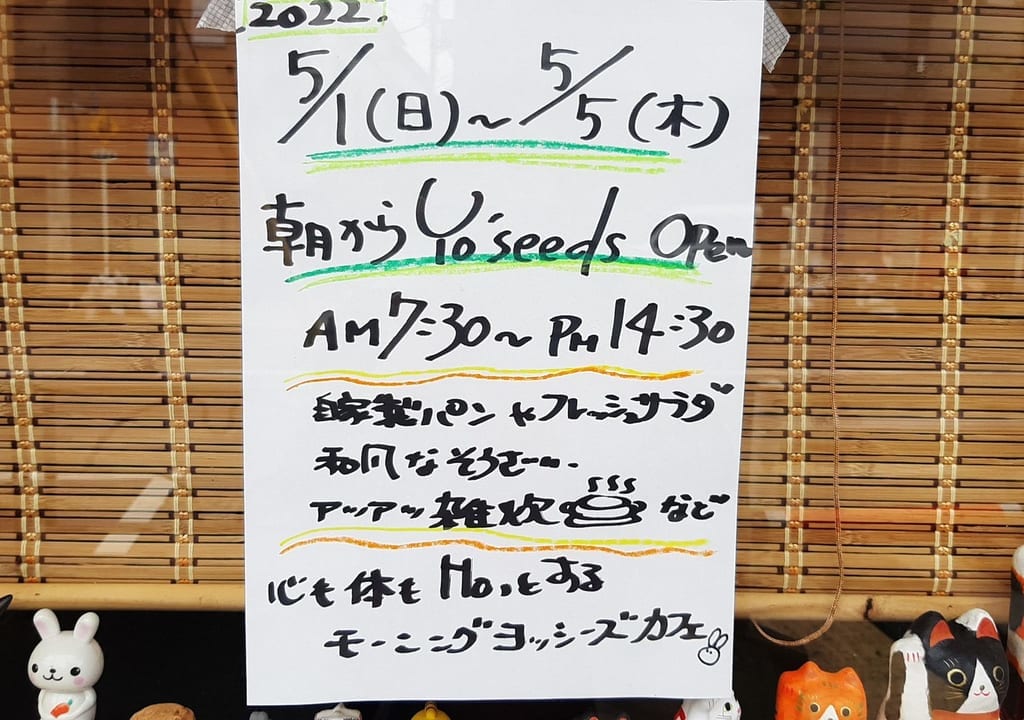 2022.
5/1(日)~5/5(木)
朝から Yo'seeds Open
AM7:30~PM14:30
自家製パンやフレッシュサラダ
和風なそうざい…
アツアツ雑炊 など
心も体もHoっとする
モーニングヨッシーズカフェ